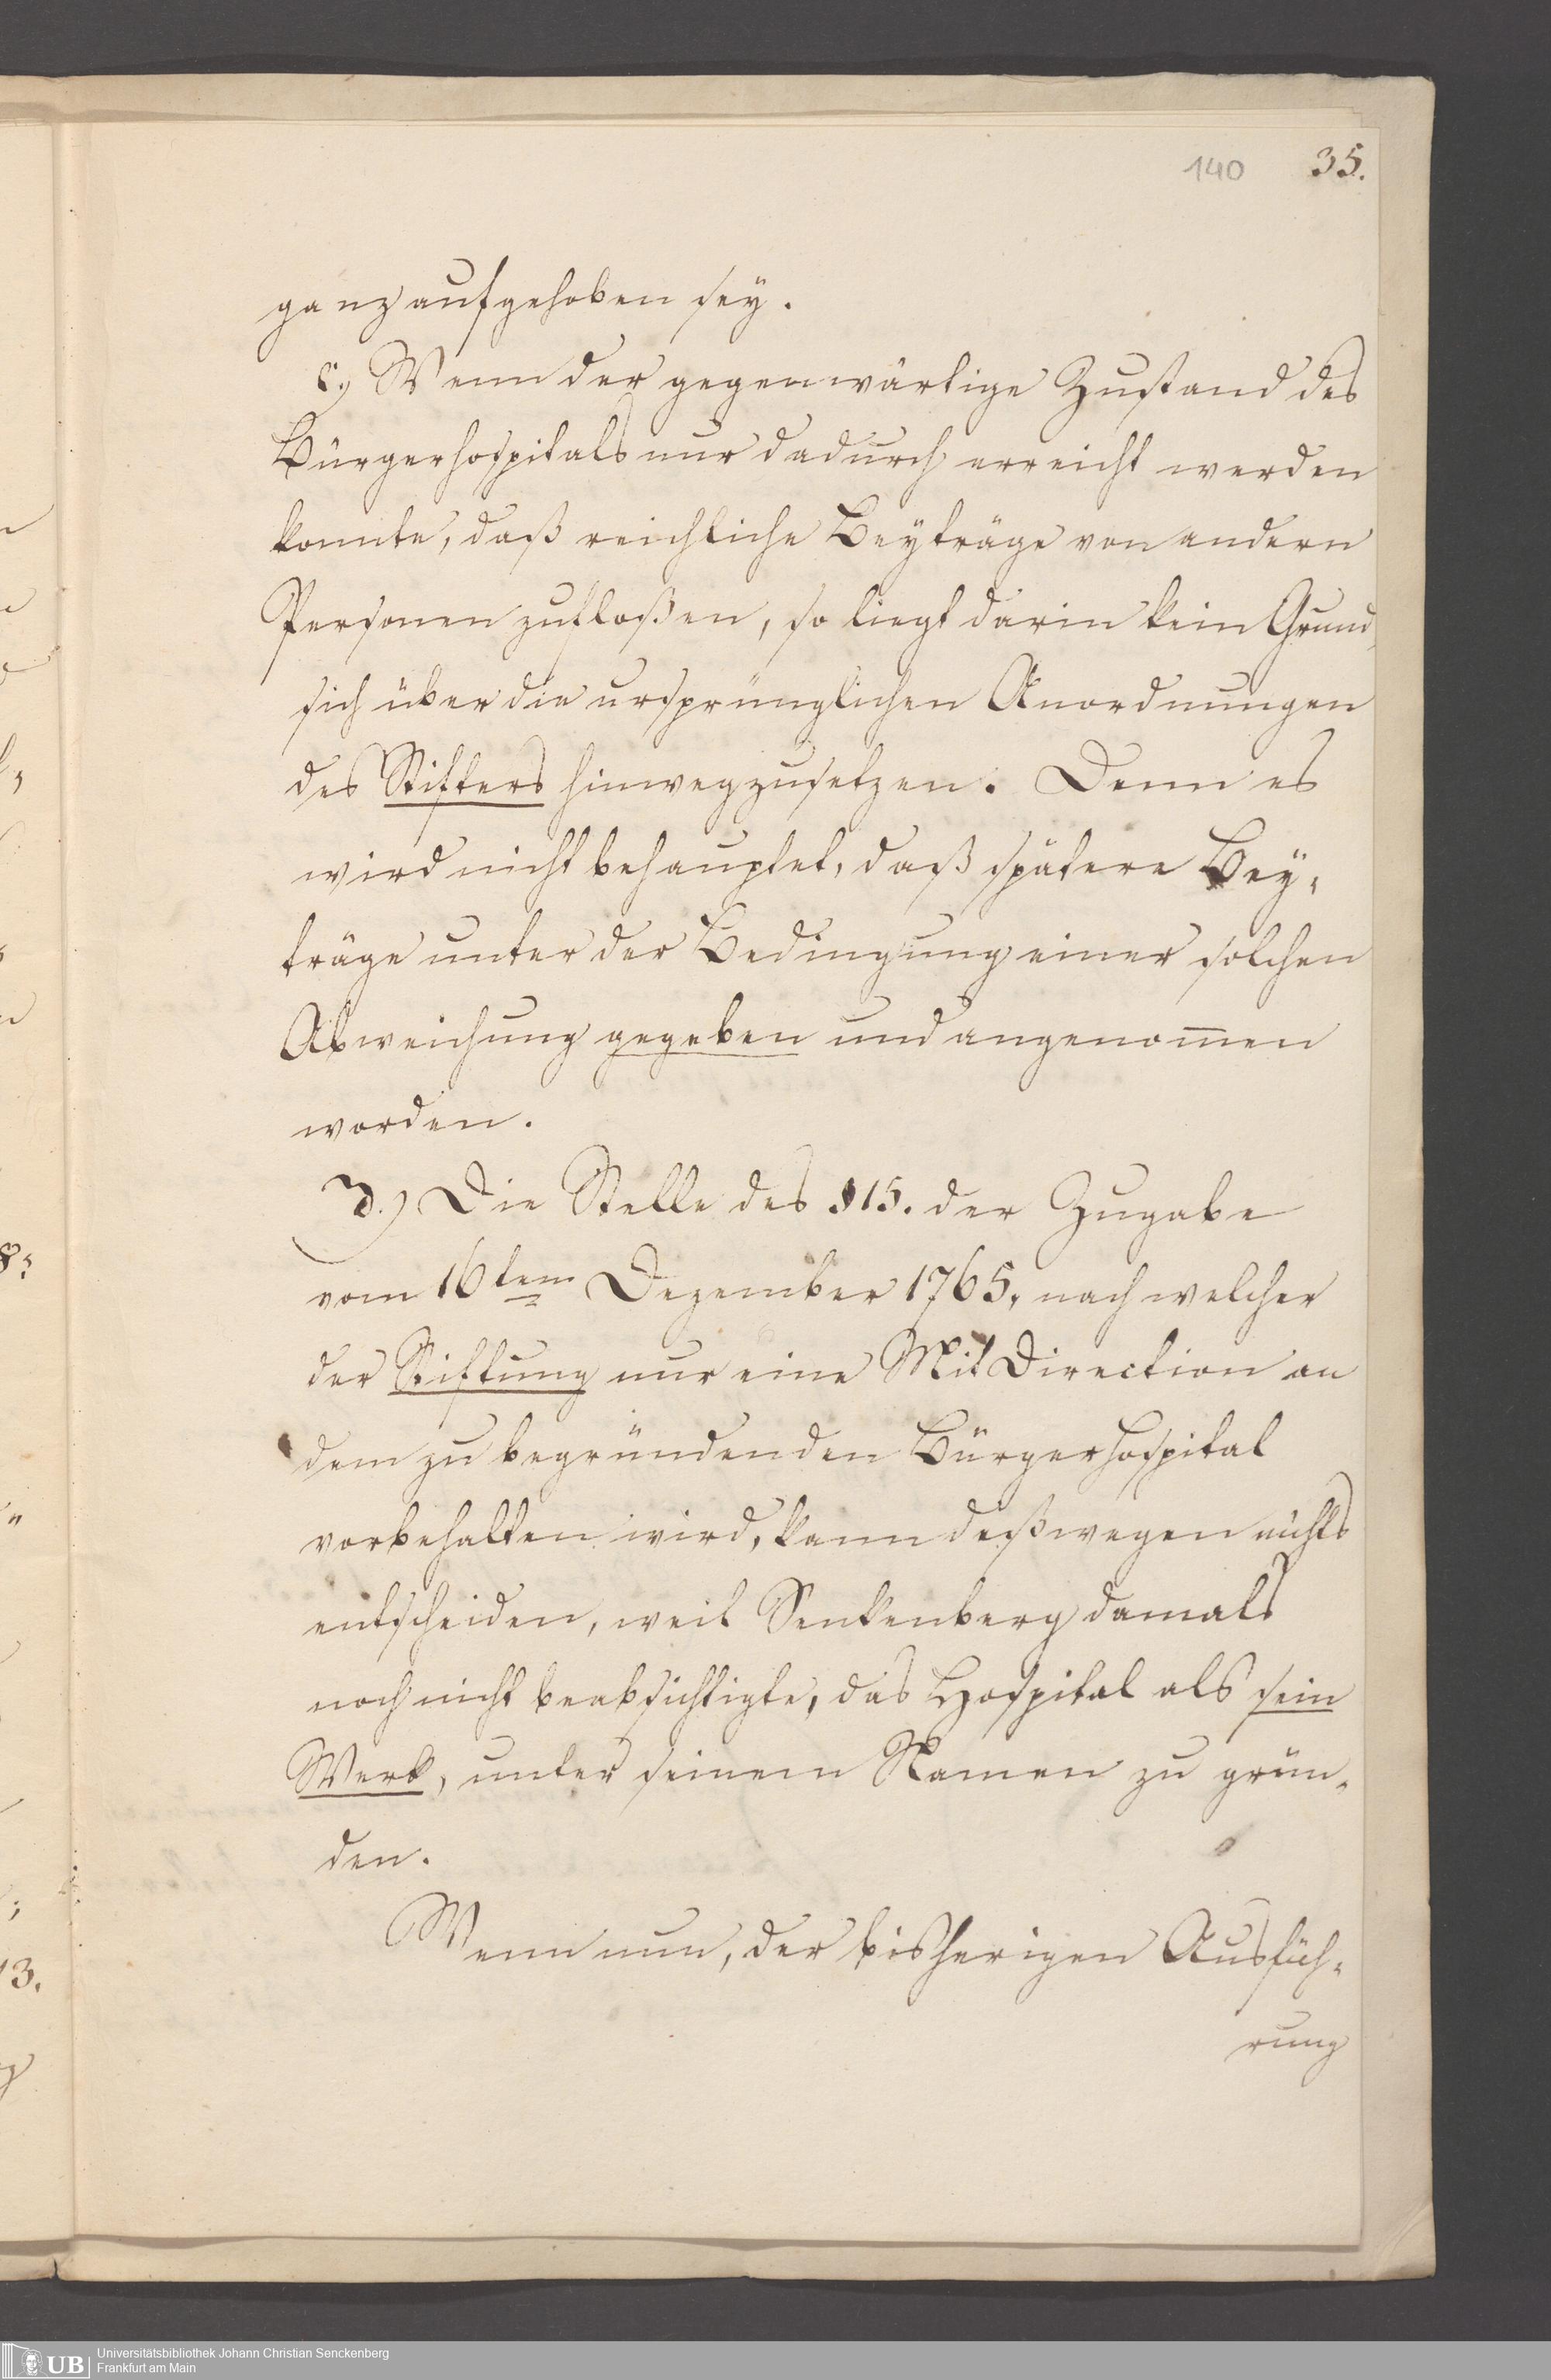 140 35.
ganz aufgehoben sey.
c.) Wenn der gegenwärtige Zustand des
Bürgerhospitals nur dadurch erreicht werden
konnte, daß reichliche Beyträge von andern
Personen zufloßen, so liegt darin kein Grund,
sich über die ursprünglichen Anordnungen
des Stifters hinwegzusetzen. Denn es
wird nicht behauptet, daß spätere Bey-
träge unter der Bedingung einer solchen
Abweichung gegeben und angenom̅en
worden.
d.) Die Stelle des §15. der Zugabe
vom 16tem Dezember 1765, nach welcher
der Stiftung nur eine MitDirection an
dem zu begründenden Bürgerhospital
vorbehalten wird, kann deßwegen nichts
entscheiden, weil Senkenberg damals
noch nicht beabsichtigte, das Hospital als sein
Werk, unter seinem Namen zu grün-
den.
Wenn nun, der bisherigen Ausfüh-
rung
UB Universitätsbibliothek Johann Christian Senckenberg
Frankfurt am Main